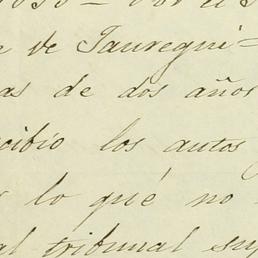 Por el
e de Jauregui =
as de dos años
cibió los autos
lo qué no
al tribunal sup